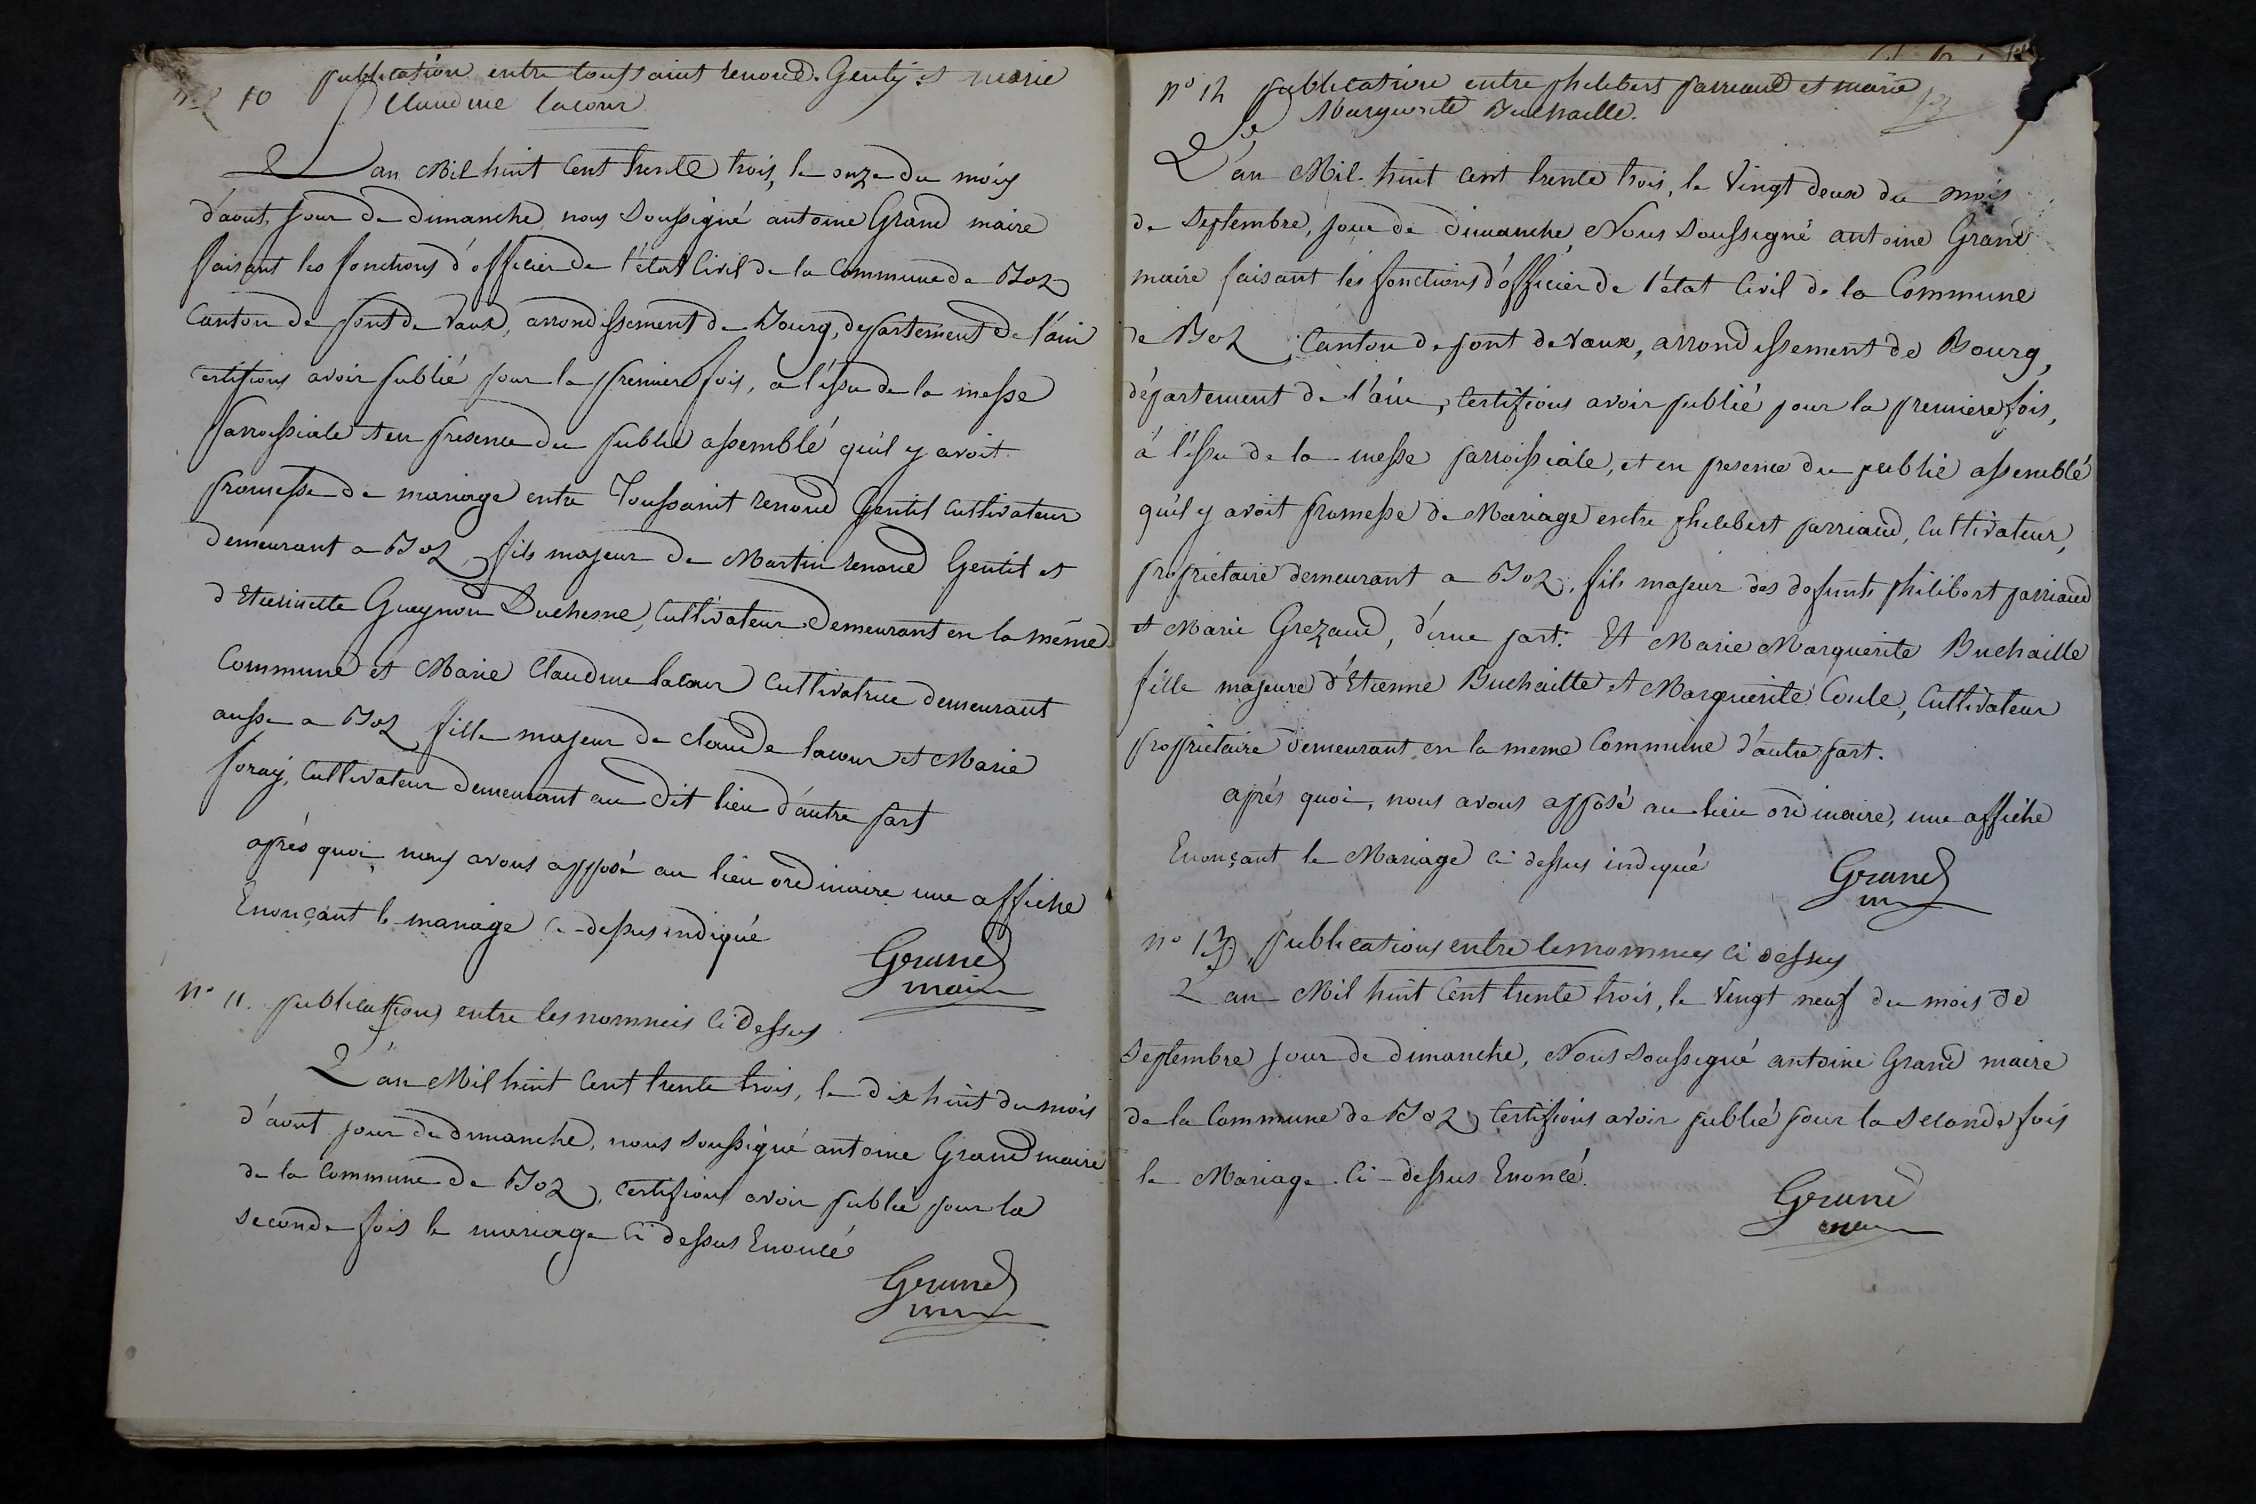 n° 10 publication entre toussaint renoud Gentij et marie
Claudine lacour
L'an Mil huit Cent trente trois, le onze du mois
d'aout, jour de dimanche nous Soussigné antoine Grand maire
faisant les fonctions d'officier de l'état Civil de la Commune de Boz
Canton de pont de vaux, arrondissement de Bourg, departement de l'ain
certifions avoir publié pour la premiere fois, a l'issu de la messe
parroissiale et en presence du public assemblé qu'il y avoit
promesse de mariage entre Toussaint renoud Gentil Cultivateur
demeurant a Boz, fils majeur de Martin renoud Gentil et
d'Etiennette Gueynon Duchesne, Cultivateur Demeurant en la même
Commune et Marie Claudine lacour Cultivatrice demeurant
aussi a Boz fille majeur de Claude lacour et Marie
foray, Cultivateur demeurant au dit lieu d'autre part
après quoi, nous avons apposé au lieu ordinaire une affiche
Enonçant le mariage ci-dessus indiqué
Grand
maire
n° 11. publications entre les nommés ci Dessus
L'an Mil huit Cent trente trois, le dix huit du mois
d'aout jour de dimanche, nous soussigné antoine Grand maire
de la Commune de Boz, certifions avoir publié pour la
seconde fois le mariage ci dessus Enoncé
Grand
maire
n° 12 publication entre philibert parriaud et marie
Marguerite Buchaille.
L'an Mil huit cent trente trois, le Vingt deux du mois
de Septembre, jour de Dimanche, Nous Soussigné antoine Grand
maire faisant les fonctions d'officier de l'état Civil de la Commune
de Boz, Canton de pont de vaux, arrondissement de Bourg,
département de l'ain, Certifions avoir publié pour la premiere fois,
à l'issu de la messe parroissiale, et en presence du public assemblé
qu'il y avoit promesse de Mariage entre philibert parriaud, Cultivateur,
proprietaire demeurant a Boz, fils majeur des defunts philibert parriaud
et Marie Grezaud, d'une part. Et Marie Marguerite Buchaille
fille majeure d'Etienne Buchaille et Marguerite Coule, Cultivateur
proprietaire demeurant en la meme Commune d'autre part.
après quoi, nous avons apposé au lieu ordinaire, une affiche
Enonçant le Mariage ci dessus indiqué
Grand
n° 13 publications entre les nommés ci dessus
L'an Mil huit Cent trente trois, le Vingt neuf du mois de
Septembre jour de dimanche, Nous Soussigné antoine Grand maire
de la Commune de Boz, Certifions avoir publié pour la seconde fois
le Mariage Ci-dessus Enoncé.
Grand
maire